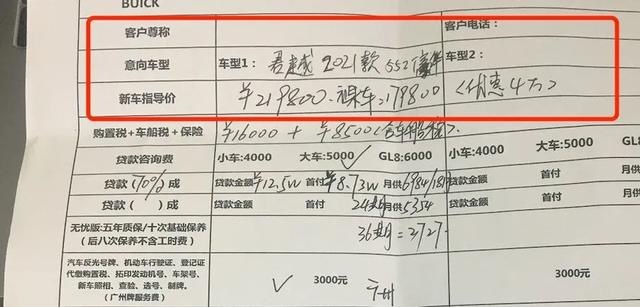 BUICK
客户尊称 客户电话：
意向车型 车型1：君越2021款552信 车型2：
新车指导价 ￥219800.裸车:179800（优惠4万）
购置税+车船税+保险 ￥16000 + ￥8500（含车船税）.
贷款咨询费 小车:4000 大车:5000 GL8:6000 小车:4000 大车:5000 GL8
贷款(70%)成 贷款金额￥12.5W 首付￥8.73W 月供6984/18期 贷款金额 首付
贷款( )成 贷款金额 首付 24期 月供5354 贷款金额 首付
无忧版:五年质保/十次基础保养
（后八次保养不含工时费）
36期=3727.
汽车反光号牌、机动车行驶证、登记证
代缴购置税、拓印发动机号、车架号、
新车照相、查验、选号、制牌。
（广州牌服务费）
3000元 广州 3000元